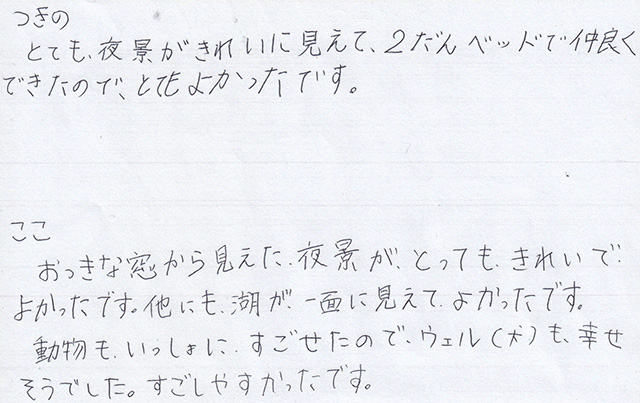 つきの
とても、夜景がきれいに見えて、2だんベッドで仲良く
できたので、とてもよかったです。
ここ
おっきな窓から見えた、夜景が、とっても、きれいで、
よかったです。他にも、湖が、一面に見えて、よかったです。
動物も、いっしょに、すごせたので、ウェル(犬)も、幸せ
そうでした。すごしやすかったです。